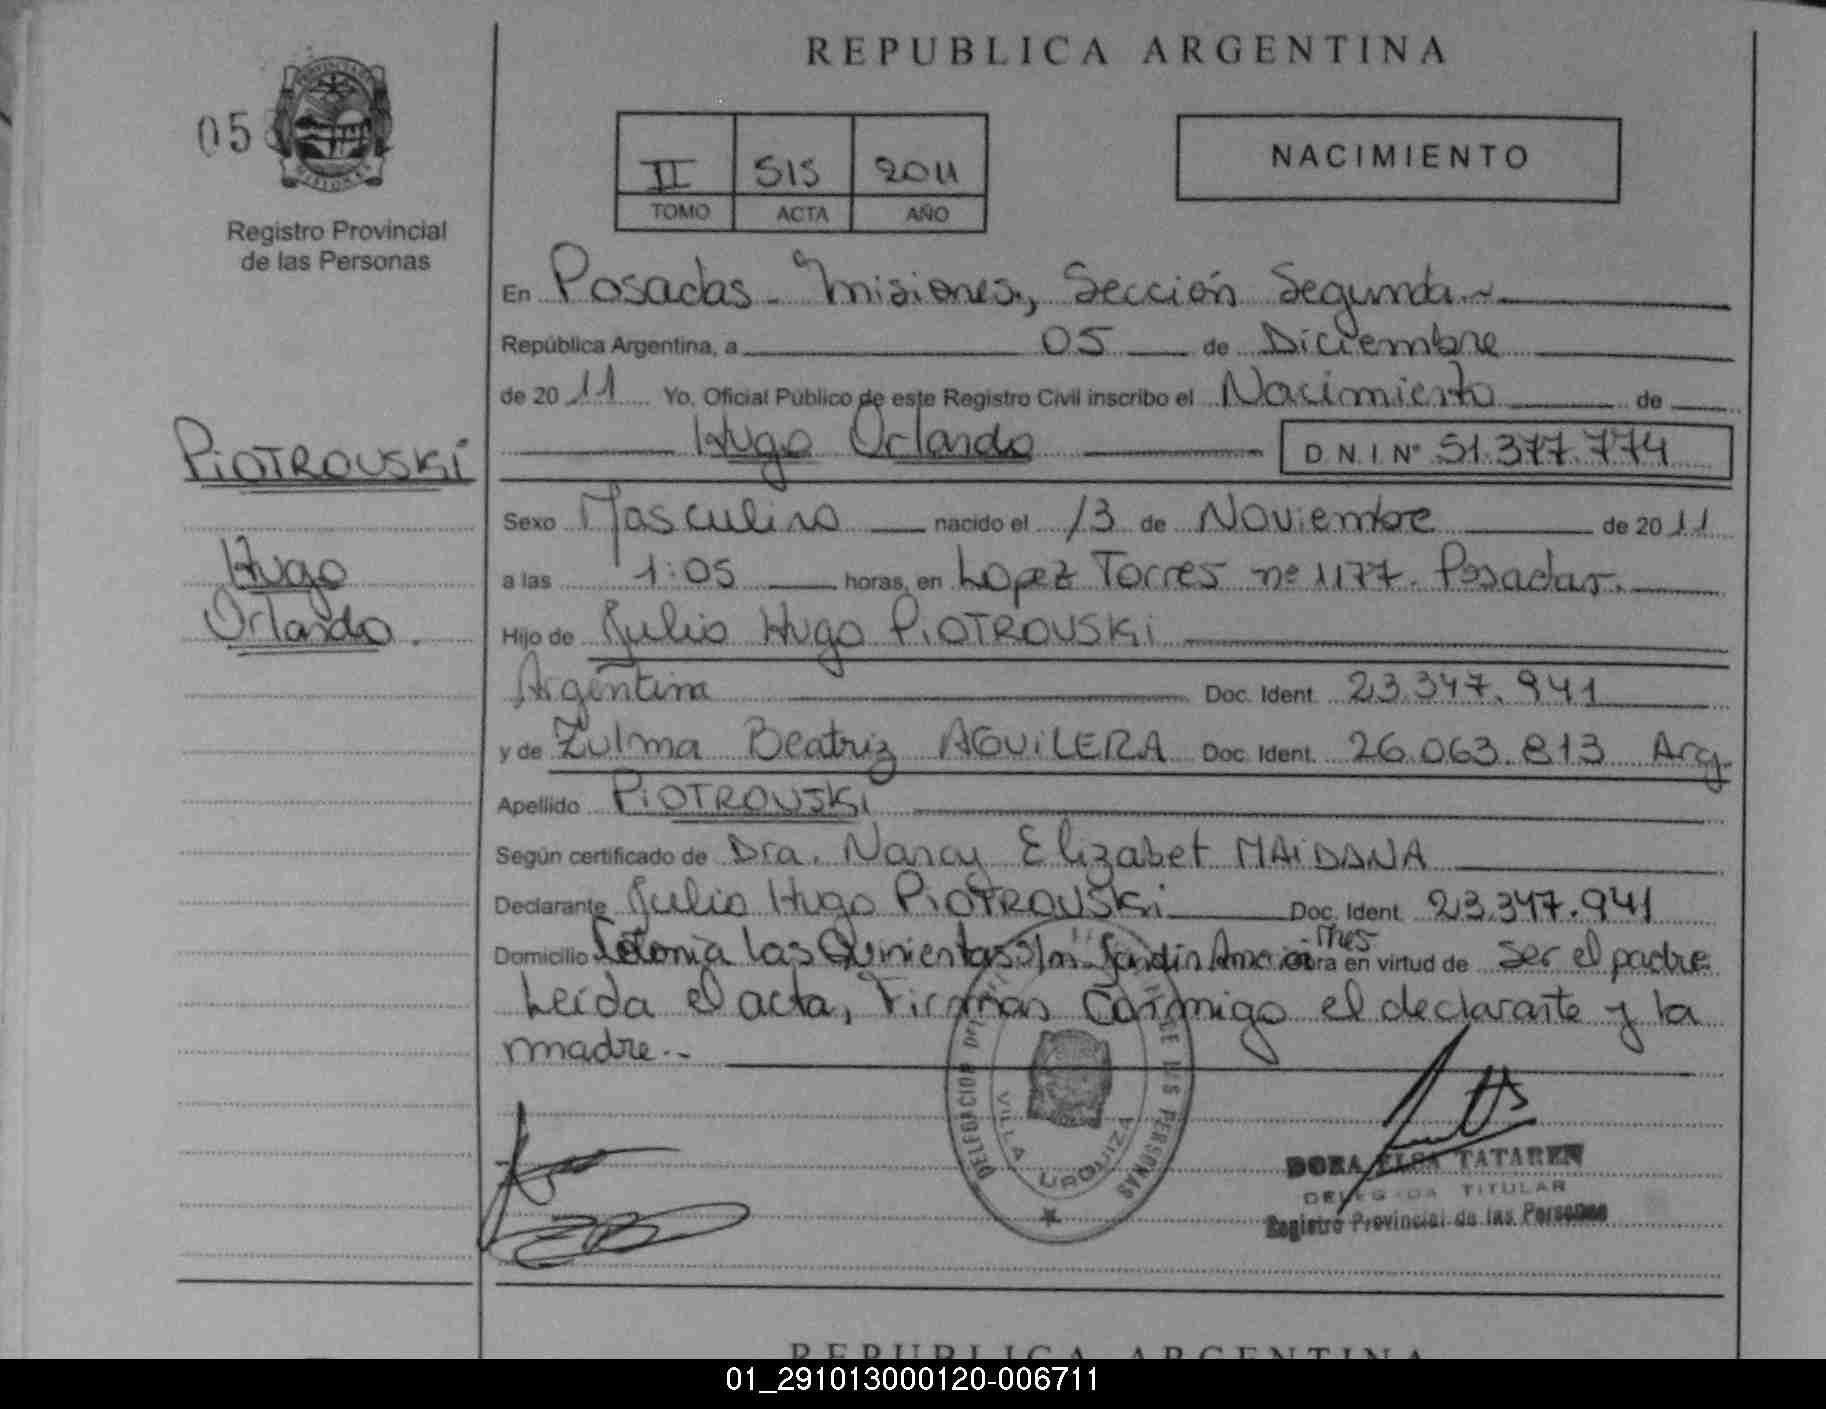 REPUBLICA ARGENTINA
05
II 515 2011
TOMO ACTA AÑO
NACIMIENTO
Registro Provincial
de las Personas
En Posadas - Misiones, Sección Segunda.~
República Argentina, a 05 de Diciembre
de 2011 Yo, Oficial Público de este Registro Civil inscribo el Nacimiento de
Hugo Orlando D.N.I. Nº 51.377.774
PIOTROUSKI
Hugo
Orlando.
Sexo Masculino nacido el 13 de Noviembre de 2011
a las 1:05 horas, en Lopez Torres nº 1177. Posadas.
Hijo de Julio Hugo PIOTROUSKI
Argentina Doc. Ident. 23.347.941
y de Zulma Beatriz AGUILERA Doc. Ident. 26.063.813 Arg.
Apellido PIOTROUSKI
Según certificado de Dra. Nancy Elizabet MAIDANA
Declarante Julio Hugo PIOTROUSKI Doc. Ident. 23.347.941
Domicilio Colonia Las Quinientas s/n - Jardín América - Mnes obra en virtud de ser el padre
Leída el acta, Firman Conmigo el declarante y la
madre.-
DELEGACION DE LAS PERSONAS
VILLA URQUIZA
DORA ELSA TATAREN
DELEGADA TITULAR
Registro Provincial de las Personas
REPUBLICA ARGENTINA
01_291013000120-006711